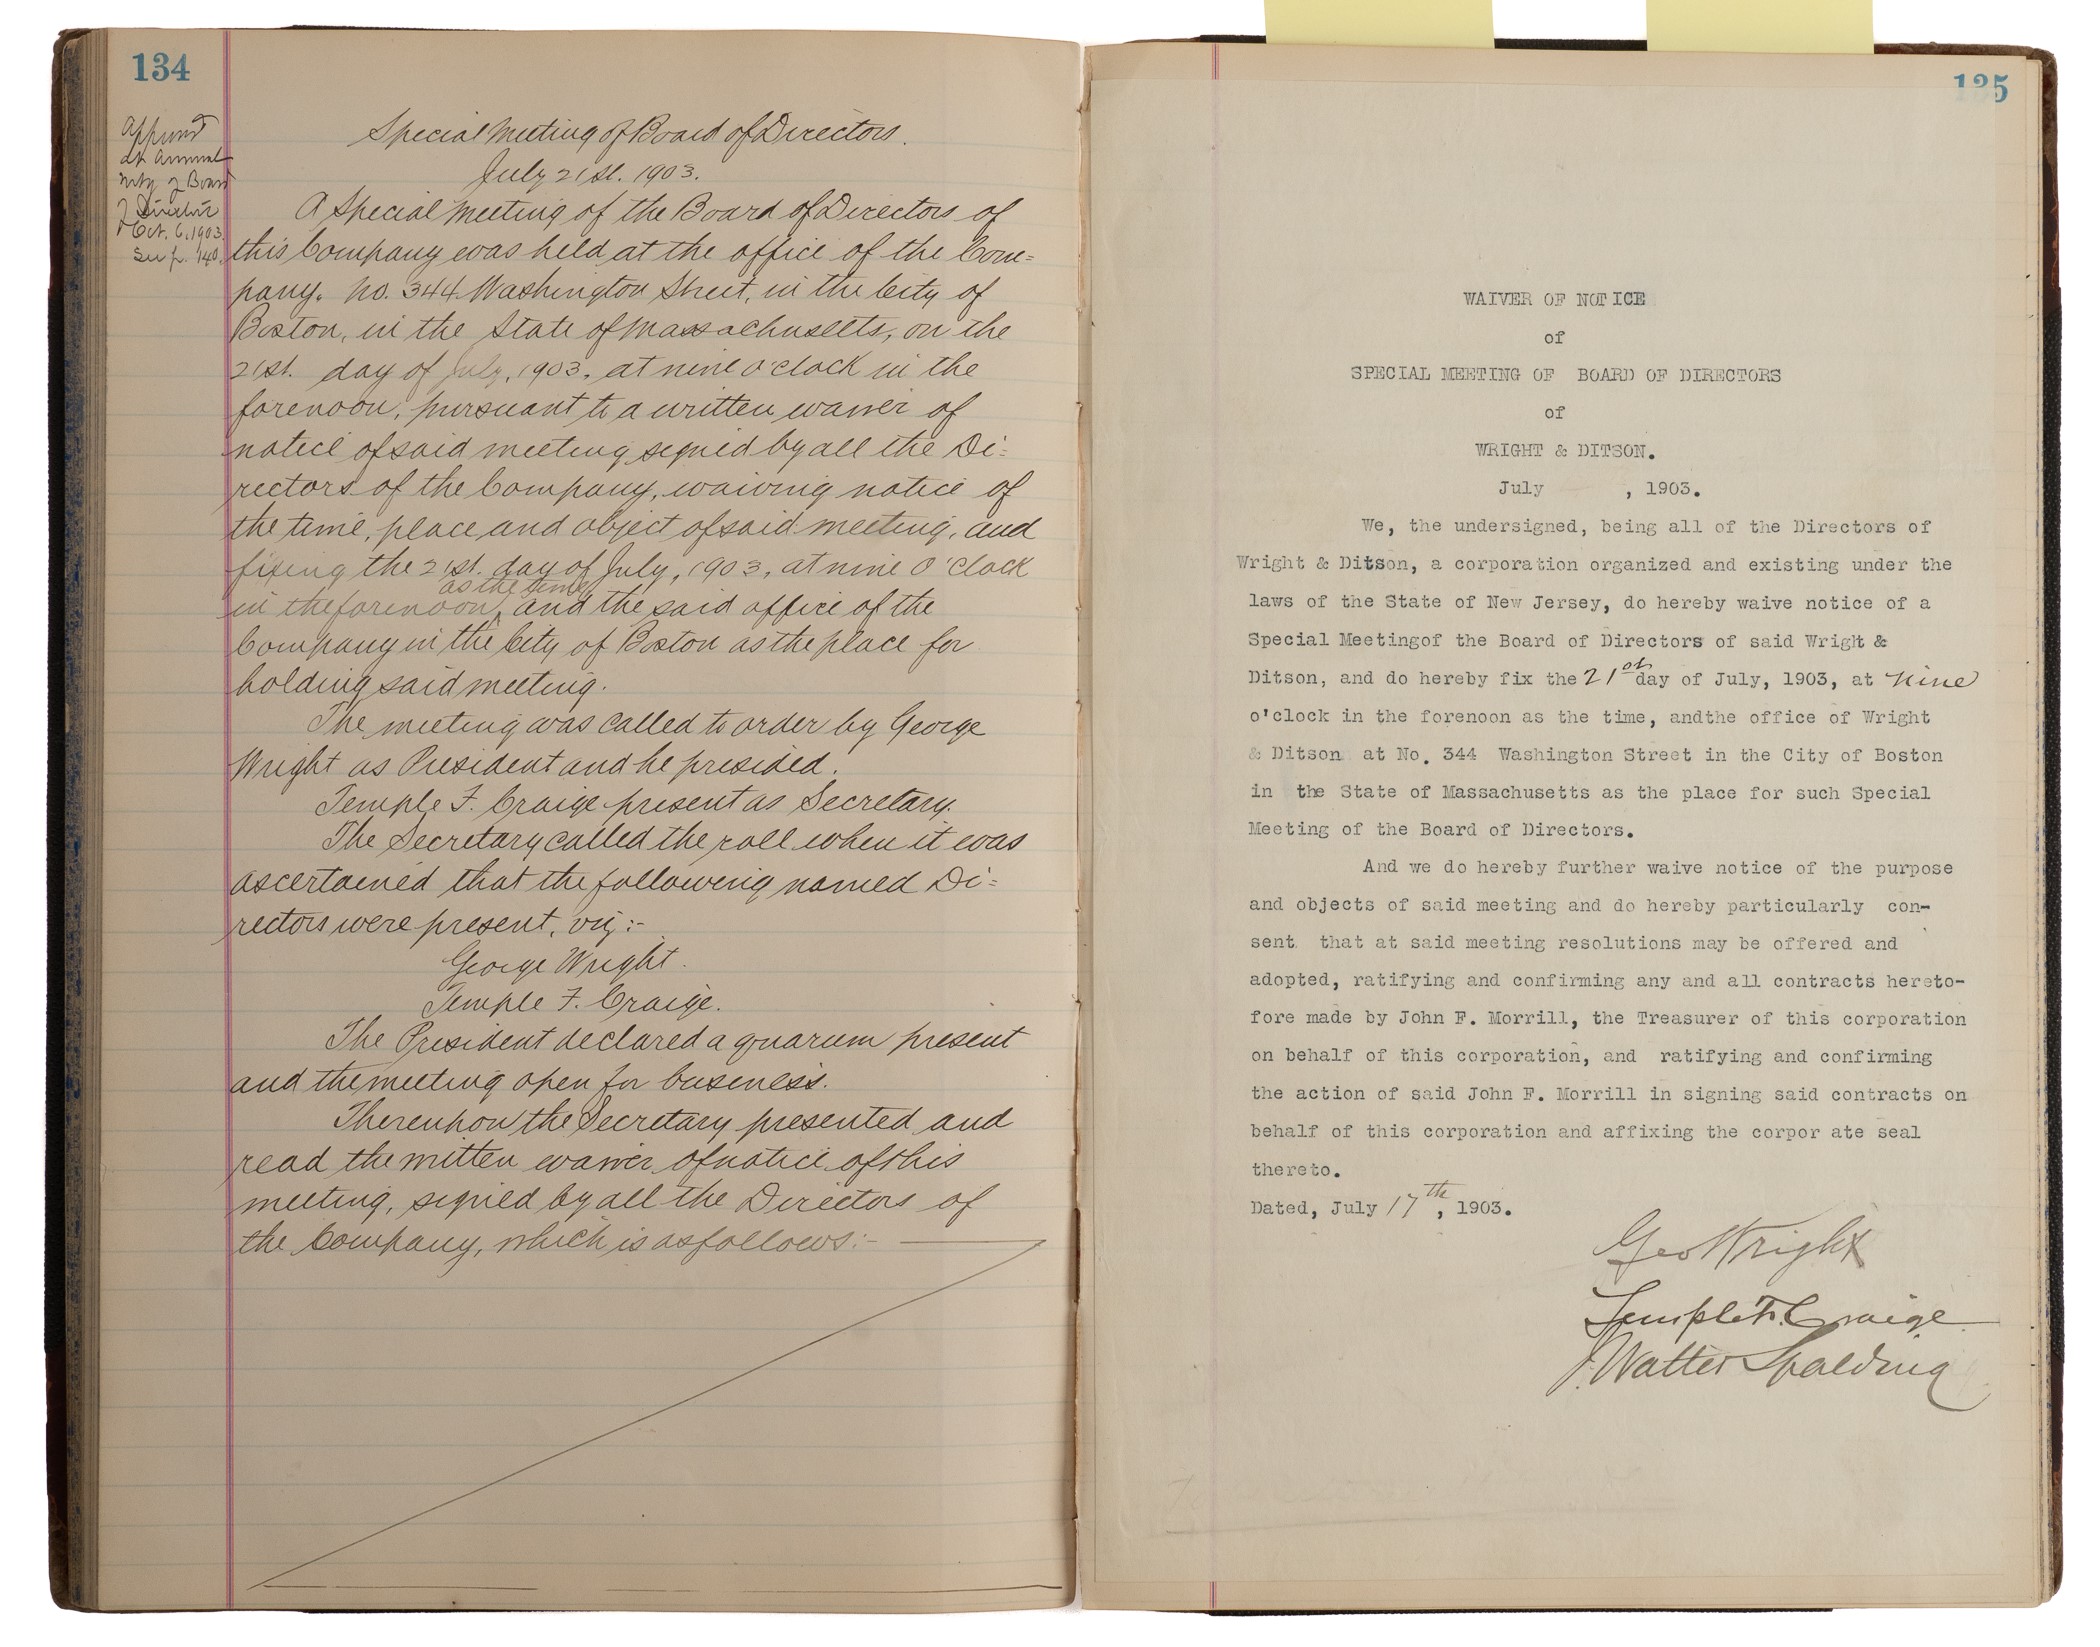 134
Approved
at Annual
Mtg of Board
of Directors
Oct. 6, 1903.
See p. 140.
Special Meeting of Board of Directors.
July 21st. 1903.
A Special Meeting of the Board of Directors of
this Company was held at the office of the Com=
pany. No. 344 Washington Street, in the City of
Boston, in the State of Massachusetts, on the
21st. day of July, 1903, at nine o'clock in the
forenoon, pursuant to a written waiver of
notice of said meeting signed by all the Di=
rectors of the Company, waiving notice of
the time, place and object of said meeting, and
fixing the 21st. day of July, 1903, at nine o'clock
as the time
in the forenoon, and the said office of the
Company in the City of Boston as the place for
holding said meeting.
The meeting was called to order by George
Wright as President and he presided.
Temple F. Craige present as Secretary.
The Secretary called the roll when it was
ascertained that the following named Di=
rectors were present, viz:-
George Wright.
Temple F. Craige.
The President declared a quorum present
and the meeting open for business.
Thereupon the Secretary presented and
read the written waiver of notice of this
meeting, signed by all the Directors of
the Company, which is as follows:-
135
WAIVER OF NOTICE
of
SPECIAL MEETING OF BOARD OF DIRECTORS
of
WRIGHT & DITSON.
July , 1903.
We, the undersigned, being all of the Directors of
Wright & Ditson, a corporation organized and existing under the
laws of the State of New Jersey, do hereby waive notice of a
Special Meetingof the Board of Directors of said Wright &
Ditson, and do hereby fix the 21st day of July, 1903, at nine
o'clock in the forenoon as the time, andthe office of Wright
& Ditson at No. 344 Washington Street in the City of Boston
in the State of Massachusetts as the place for such Special
Meeting of the Board of Directors.
And we do hereby further waive notice of the purpose
and objects of said meeting and do hereby particularly con-
sent that at said meeting resolutions may be offered and
adopted, ratifying and confirming any and all contracts hereto-
fore made by John F. Morrill, the Treasurer of this corporation
on behalf of this corporation, and ratifying and confirming
the action of said John F. Morrill in signing said contracts on
behalf of this corporation and affixing the corpor ate seal
thereto.
Dated, July 17th, 1903.
Geo Wright
Temple F. Craige
J. Walter Spalding